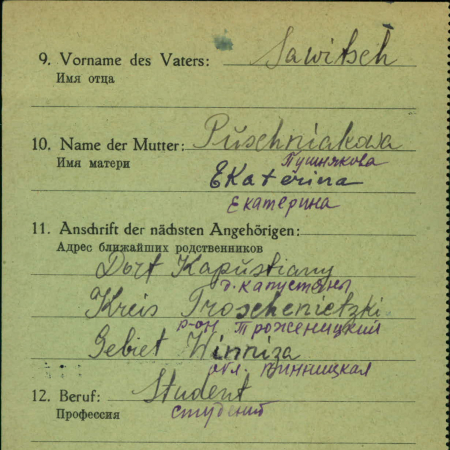 9. Vorname des Vaters: Sawitsch
Имя отца
10. Name der Mutter: Puschniakowa
Имя матери Пушнякова
Ekaterina
Екатерина
11. Anschrift der nächsten Angehörigen:
Адрес ближайших родственников
Dorf Kapustiany
д. Капустяны
Kreis Troschenietzki
р-он Троженицкий
Gebiet Winniza
обл. Винницкая
12. Beruf: Student
Профессия студент